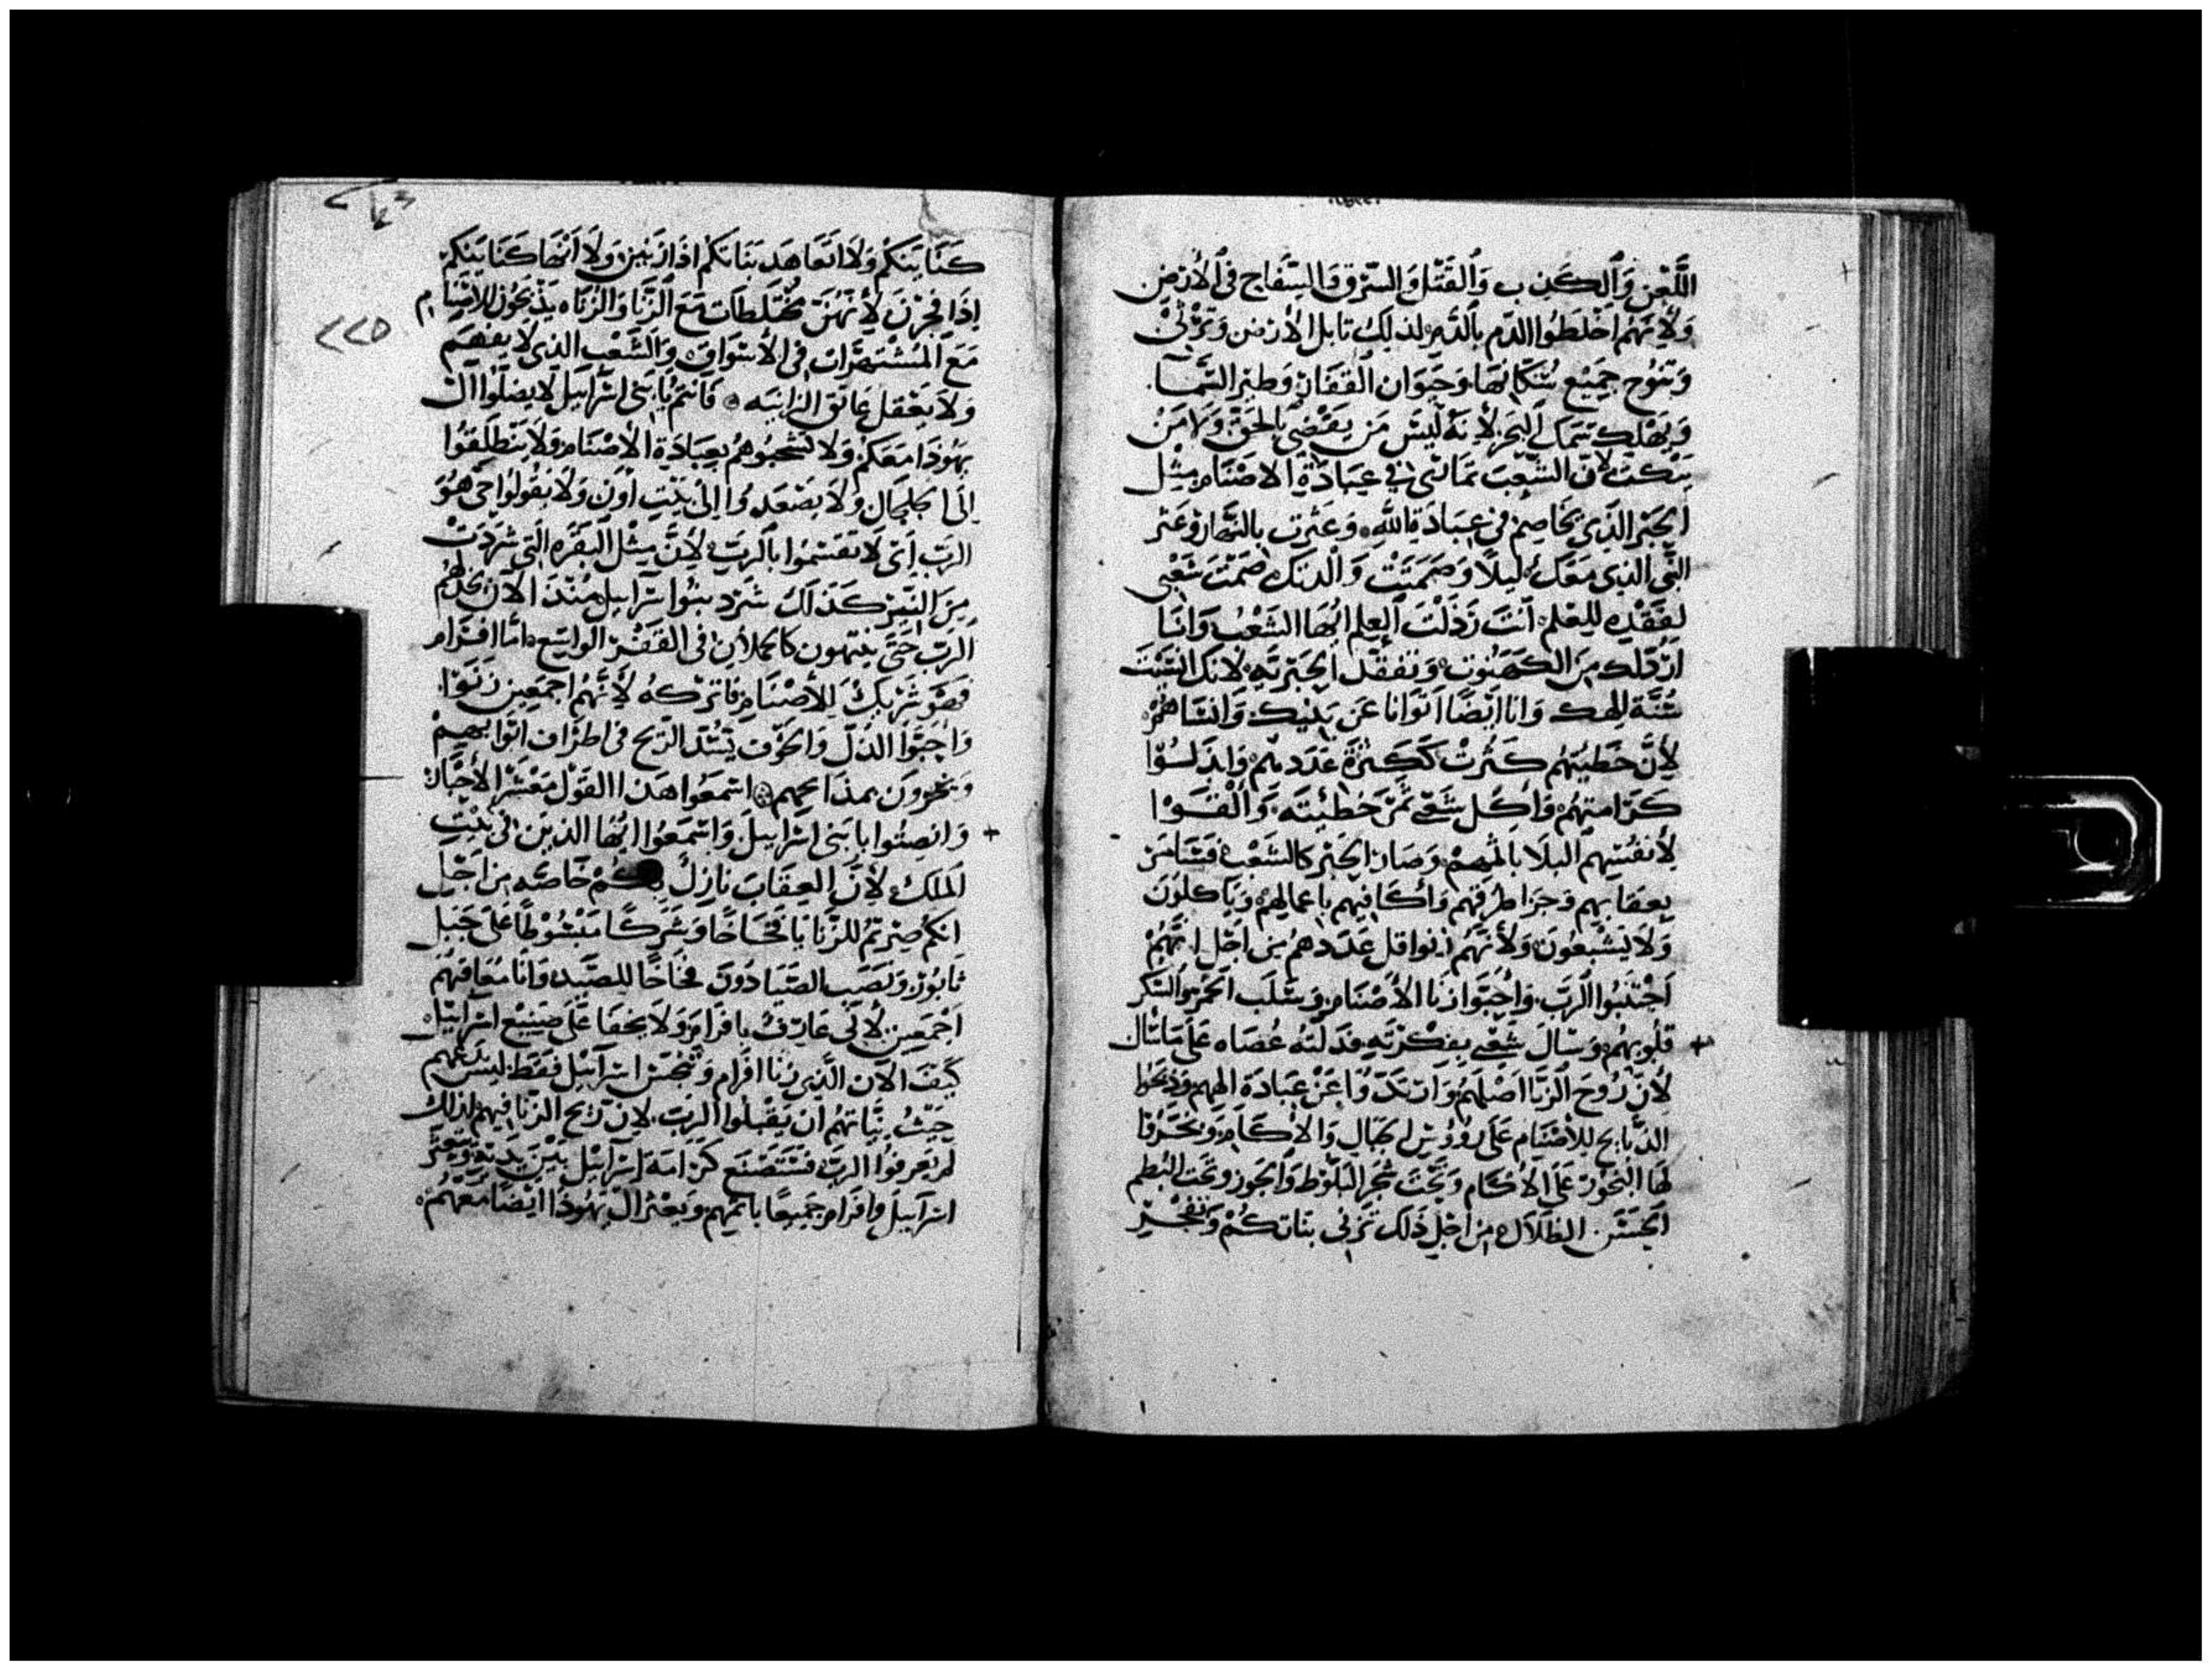 اللَّعْن وَالكَذِب وَالقَتْل وَالسَّرَق وَالسِّفَاح فى الأرْض
وَلأنهُم اخْلَطُوا الدَّم بالدَّم لذلِكَ تابل الأرْض وَتَرْثى
وَتنُوح جَمِيْع سُكانهَا وَحَيَوَان القفَار وَطير السَّما
وَيَهْلِك سَمَك البَحر لأنَهُ لَيْسَ مَن يقضى بالحَق وَلا مَنْ
يبكت لأن الشَّعْبَ تمَاسَى فى عِبَادَة الاصْنَام مِثْل
الحَبْر الذِى يخَاصِم فى عِبَادَة الله وَعثرت بالنَّهار وعَثر
النَّبى الذِى مَعَكَ لَيْلاً وَصَمَتَتْ وَالدتك صَمَتَ شَعْبى
لِفَقْدِهِ لِلعِلم أنتَ رَذَلْتَ العِلم ايُّهَا الشَّعْبُ وَانَا
ارْذلك مِنَ الكَهَنُوت وَتفقد الحَبْريَه لأنك انسَيْتَ
سُنَّة إلهك وَانا ايْضًا انسَاهُمْ
لأنَّ خطِيَتهُم كَثُرتْ كَكَثرَة عَدَدهم وَابدَلُوا
كَرَامتهُم وَاكل شَعْبى ثمَن خطيئتَه وَالْقَوْا
لأنفُسِهِم البلا باثمِهِمْ وَصَار الحَبْر كالشَعْب
بعقابهم وَجزا طرقهم وَأكافيهم باعمالِهم وَيَاكلونَ
وَلاَ يَشْبعُونَ وَلأنَّهُم زنوا قل عَدَدهُم مِن اَجْل انهُمْ
اجْتَنَبُوا الرَّبَ وَاحَبّوا زنَا الأصْنَام وَسَلَب الخمر والسكر
قلُوبهُم وَسَالَ شَعْبى بفكْرَتِه فدَلتهُ عُصَاه عَلى مَاسَال
لأن رُوحَ الزنَا اضَلهُم وَارتدّوُا عَنْ عِبَادَة الههم وَذبحوا
الذبَايح للأصْنَام عَلى رؤوس الجبَال وَالاكَام وَبخَّروا
لهَا البَخُور عَلى الاكَام وَتَحْتَ شَجَر البَلّوْط وَالجَوز وتحت البُطم
الحَسَن الظلال مِن اَجْل ذَلك تزنى بناتكُمْ وَتفجُر
كَنَايَنَكُم وَلاَ اتعَاهَد بَنَاتكُم اذَا زَنَيْن وَلاَ انْهَا كَنَايَنَكُم
إذا فجرْنَ لأنهُنّ مختَلطات مَعَ الزنا وَالزنَاه يَذبحُون للاصْنَام
مَعَ المُشتَهَرَات فى الأسْوَاق وَالشَعْب الذِى لا يفهَم
وَلاَ يَعْقل عَانَق الزانيَه فَانتُم يَا بَنى اسْرَاييل لا يضلوا ال
يهُوذا مَعَكُم وَلا تَصْحَبُوهُم بعبَادَة الأصْنَام وَلاَ يَنْطَلقوُا
الى الجلجَال وَلا يصْعَدوُا الىٰ بَيْتِ اون وَلاَ يقُولوا حَى هُوَ
الرَب اى لا تقسِمُوا بالرَب لأنَّ مِثْل البَقَرَه التى شَرَدَتْ
مِنَ النيْر كَذَلك شَرد بنُوا اسْرَاييل مُنْذ الآن يخذلهُم
الرَبّ حَتّى يتيهُون كالحملان فى القَفْر الواسِع امّا افرَام
فهُوَ شَرِيكٌ لِلأصْنَام فاترُكهُ لأنَّهُم اجْمَعِين زنَوْا
وَاحَبّوا الذلّ وَالخَوْف تشتَد الرّيح فى اطرَاف اثوابهِمْ
وَيخزوْن بمذابحهم اسْمَعُوا هَذا القَوْل مَعْشَر الأحْبَار
وَانصِتُوا يا بَنى اسْرَاييل وَاسْمَعُوا ايّهَا الذين فى بَيْتِ
المَلكُ لأنَّ العِقابَ نازلٌ بِكُم خاصّه مِن اَجْل
انكُم صِرْتُم للزنا بَا فخَاخًا وَشَرَكًا مَبْسُوْطًا عَلى جَبَل
ثَابُور وَنَصَب الصّيَادُون فخَاخًا لِلصّيْد وَانا مُعَاقبهُم
اجْمَعِين لأنى عَارفٌ بافرَام وَلاَ يخفَا عَلى صَنِيع اسْرَاييل
كيْفَ الآن الّذِى زنا افرام وَتنَجَّسَ اسْرَاييل فقط ليْسَ تدعهم
خبثُ نيّاتهُم ان يَقبلوا الرَّب لأن رُيح الزنا فيهم لذلك
لم يَعرفوُا الرب فسَتَضَع كرامَة اسْرَاييل بَيْن يَدَيْه وَيَعثر
اسْرَاييل وافرَام جَميعًا باثمهم وَيَعثر ال يهُوذا ايضًا مَعَهُم
٢٢٥